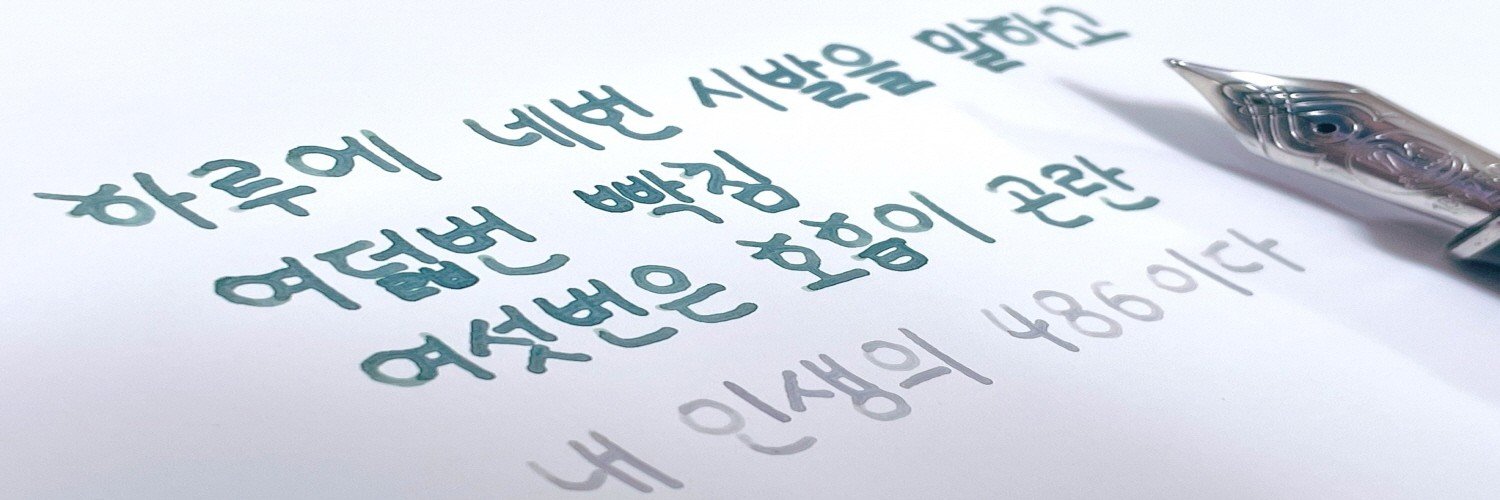 하루에 네번 시발을 말하고
여덟번 빡침
여섯번은 호흡이 곤란
내 인생의 486이다